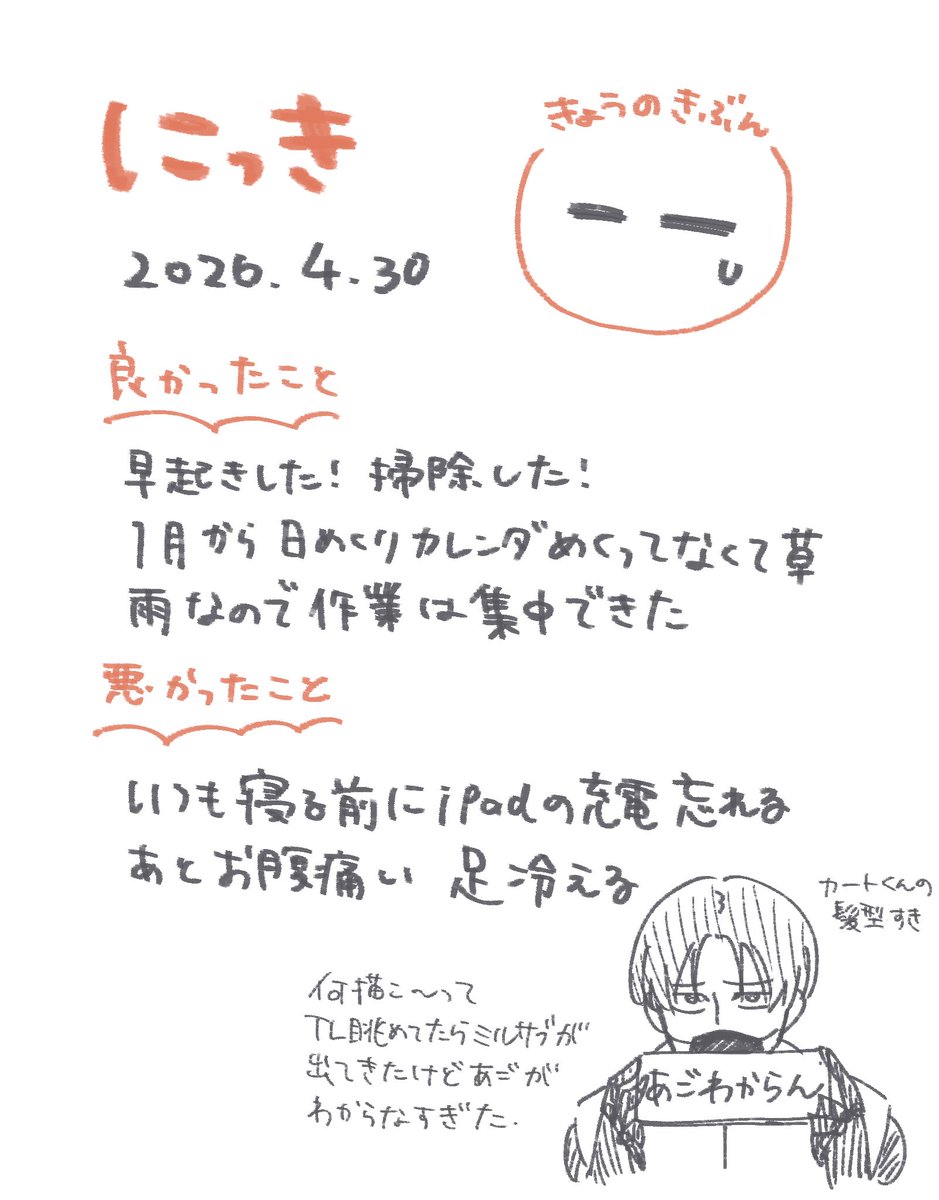 にっき
きょうのきぶん
2026.4.30
良かったこと
早起きした！掃除した！
1月から日めくりカレンダめくってなくて草
雨なので作業は集中できた
悪かったこと
いつも寝る前にiPadの充電忘れる
あとお腹痛い 足冷える
カートくんの
髪型すき
何描こ〜って
TL眺めてたらミルサブが
出てきたけどあごが
わからなすぎた.
あごわからん